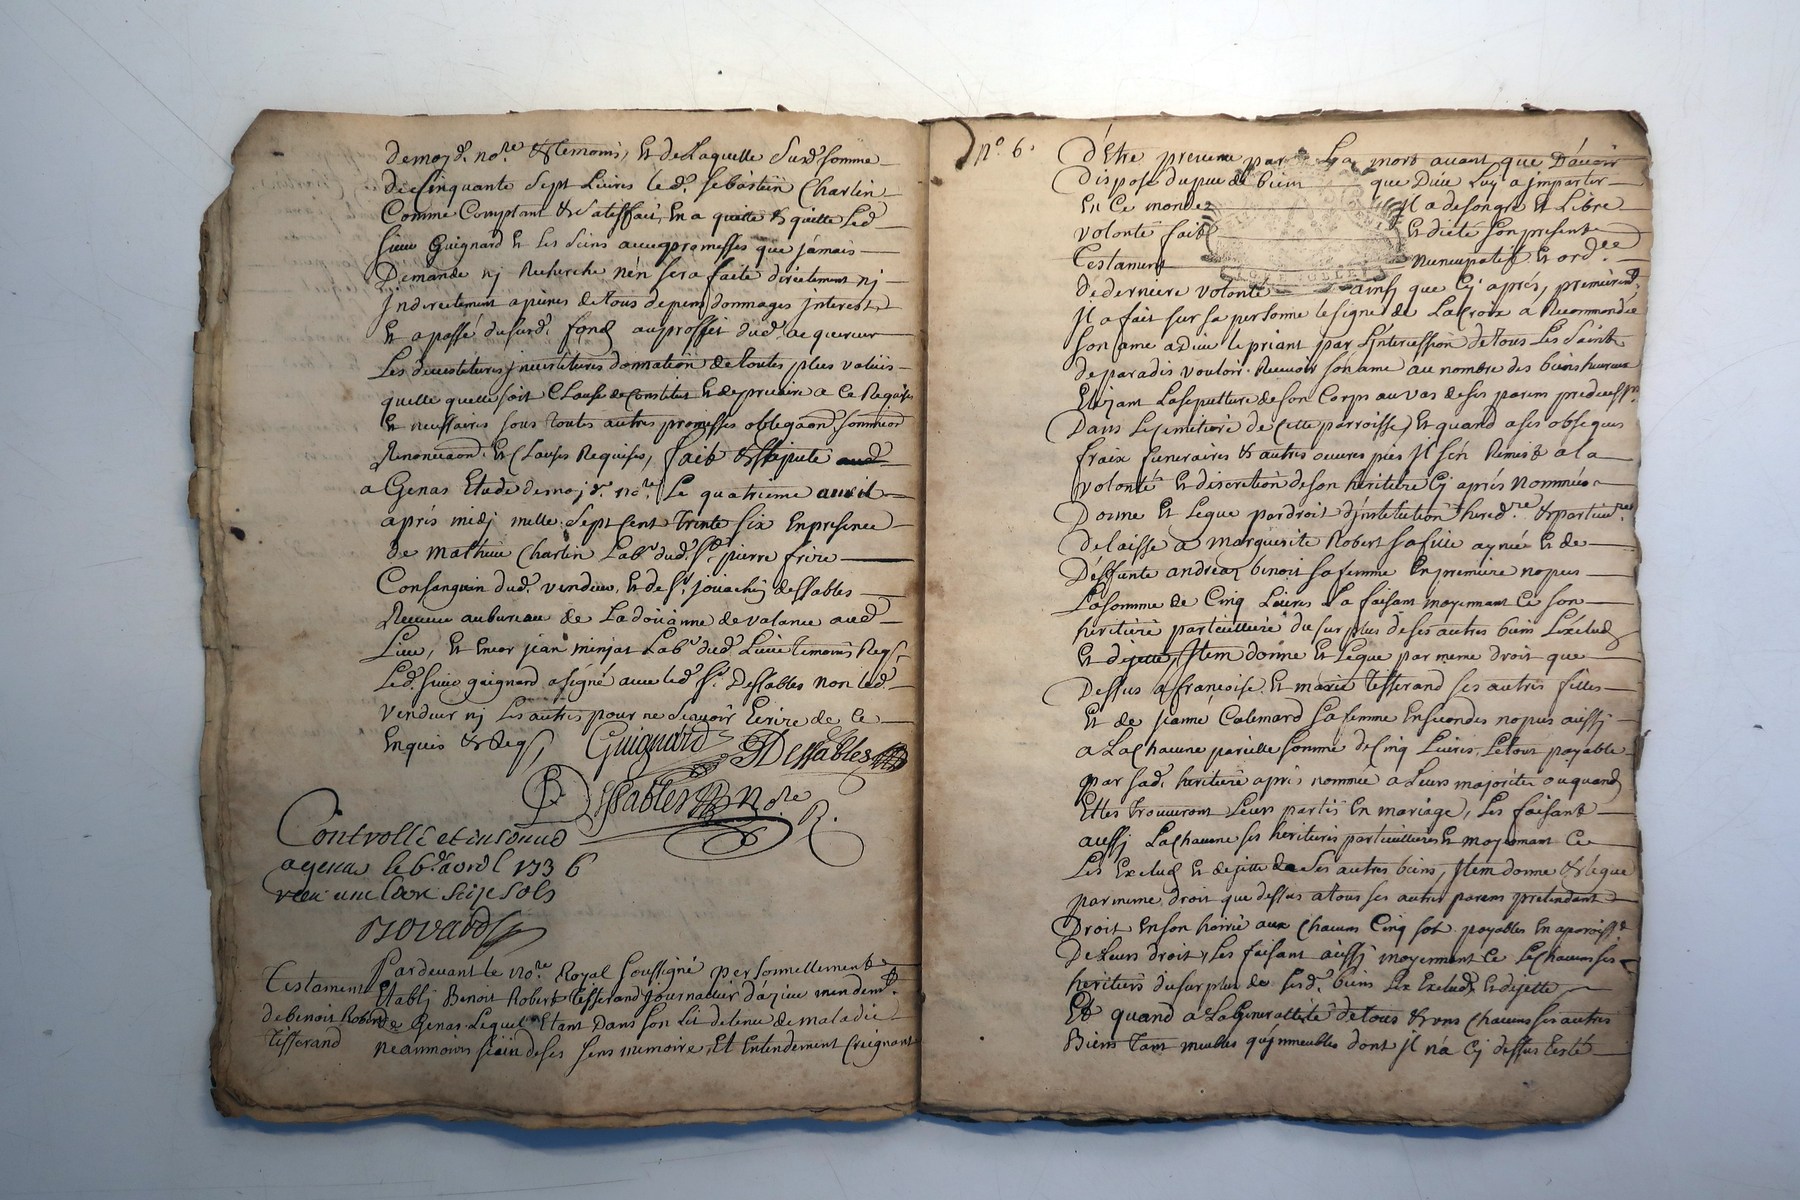 demoy d. no.re & temoins, Et de Laquelle Surd. somme
de Cinquante Sept Livres led. sebastien Charlin
Comme Comptant & satisffait, En a quitté & quitte Led
sieur Guignard Et Les Siens avec promesses que jamais
Demande nj Recherche n'en sera faite directement nj
jndirectement a peines de tous depens dommages jnterests
Et a passé du surd. fond au proffit dud. acquereur
Les devestitures jnvestitures donnation de toutes plus values
quelle quelle soit Clause de Constitut Et de precaire a Ce Requises
Et necessaires sous toutes autres promesses obligaon soumission
Renonciaon Et Clauses Requises, fait & stipulé
a Genas Etude demoj d. no.re Le quatrieme avril
aprés midj mille Sept Cent trente six En presence
de mathieu Charlin Lab.r dud. pierre frere
Consanguin dud. vendeur, Et de s.r jouachin dessables
Receveur au bureau de La doüanne de valance aud
Lieu, Et Encor jean minjat Lab.r dud. Lieu temoins Req.s
Led. sieur guignard a signé avec led. s.r Dessables non led.
vendeur nj Les autres pour ne Scavoir Ecrire de Ce
Enquis & Req.s Guignard Dessables
Dessables No.re R.
Controllé et insinué
a genas le 6. avril 1736
reçu une livre seize sols
Testament
de benoit Robert
Tisserand
Pardevant le no.re Royal soussigné personnellement
Etablj Benoit Robert Tisserand journalier
de Genas Lequel Etant Dans son Lit detenu de maladie
neanmoins sain de ses sens memoire, Et Entendement Creignant
n.o 6.
D'Etre prevenu par La mort avant que D'avoir
dispose du peu de bien que Dieu Luy a jmpartir
En Ce monde Jl a de son gré Et Libre
volonté fait Et dicté son present
Testament nuncupatif Et ord.ce
de derniere volonté ainsj que Cj aprés, premierem.t
Jl a fait sur sa personne le signe de La Croix á Recommandé
son ame a Dieu le priant par L'intercession de tous Les Saints
de paradis vouloir Recevoir son ame au nombre des bienheureux
Elizant La sepulture de son Corps au vas de ses parens
Dans Le Cemetiere de Cette parroisse, Et quand a ses obseques
fraix funeraires & autres oeuvres pies Jl s'en Remis a la
volonté Et discretion de son heritiere Cj aprés Nommée
Donne Et Legue par droit d'jnstitution hered.re & particu.re
delaisse a marguerite Robert sa fille aynée Et de
Deffunte andrea benoit sa femme En premiere nopces
La somme de Cinq Livres La faisant moyennant Ce son
heritiere particulliere du surplus de ses autres biens L'exclud
Et dejette, Jtem donne Et Legue par meme droit que
Dessus a francoise Et marie tisserand ses autres filles
Et de jeanne Calemard sa femme En secondes nopces aussj
a La Chacune pareille somme de Cinq Livres, Le tout payable
par sad. heritiere aprés nommée a Leurs majorité ou quand
Elles trouveront Leurs partis En mariage, Les faisant
aussj La Chacune ses heritieres particullieres moyennant Ce
Les Exclud Et dejette de ses autres biens, Jtem donne & legue
par meme droit que dessus a tous ses autres parens pretendant
Droit En son hoirie aux Chacuns Cinq sols payables En
De Leurs droit, Les faisant aussj moyennant Ce Les Chacuns ses
heritiers du surplus de sesd. biens Les Exclud, Et dejette
Et quand a La Generallité de tous & uns Chacuns ses autres
Biens tant meubles qu'jmmeubles dont Jl n'a Cj dessus testé